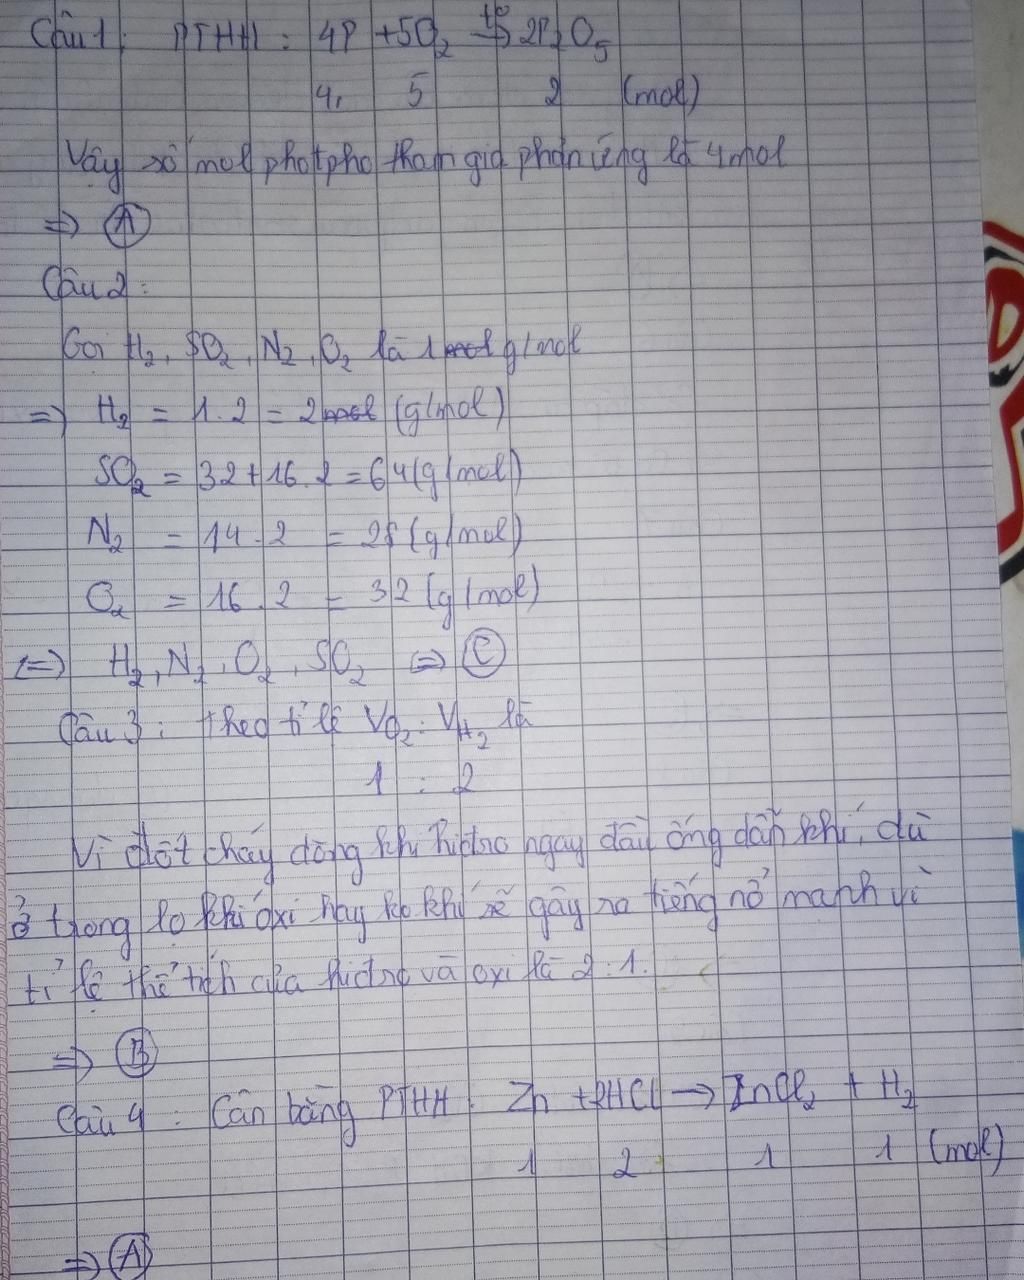 Câu 1: PTHH: 4P + 5O₂ t° → 2P₂O₅
4, 5 2 (mol)
Vậy số mol photpho tham gia phản ứng là 4 mol
=> A
Câu 2:
Gọi H₂, SO₂, N₂, O₂ là 1 g/mol
=> H₂ = 1.2 = 2 (g/mol)
SO₂ = 32+16.2 = 64 (g/mol)
N₂ = 14.2 = 28 (g/mol)
O₂ = 16.2 = 32 (g/mol)
<=> H₂, N₂, O₂, SO₂ => C
Câu 3: theo tỉ lệ VO₂ : VH₂ là
1 : 2
Vì đốt cháy dòng khí hidro ngay đầu ống dẫn khí, dù
ở trong lọ khí oxi hay ko khí sẽ gây ra tiếng nổ mạnh vì
tỉ lệ thể tích của hidro và oxi là 2:1.
=> B
Câu 4: Cân bằng PTHH: Zn + 2HCl → ZnCl₂ + H₂
1 2 1 1 (mol)
=> A